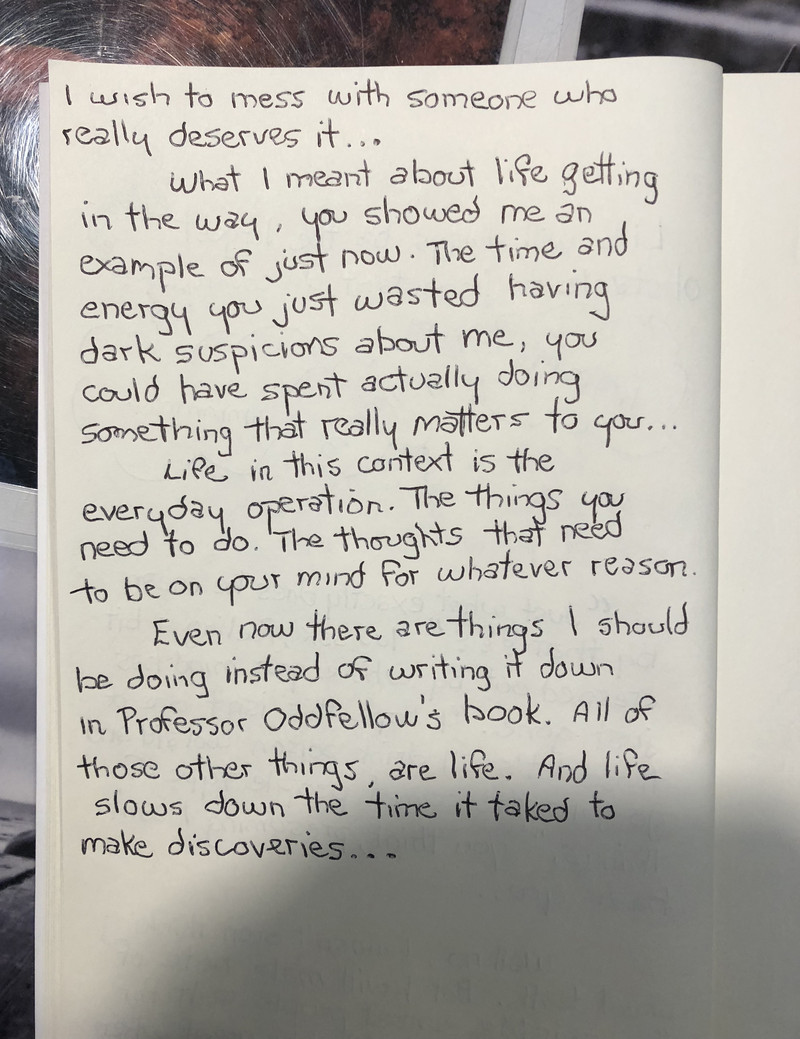 I wish to mess with someone who
really deserves it...
What I meant about life getting
in the way, you showed me an
example of just now. The time and
energy you just wasted having
dark suspicions about me, you
could have spent actually doing
something that really matters to you...
Life in this context is the
everyday operation. The things you
need to do. The thoughts that need
to be on your mind for whatever reason.
Even now there are things I should
be doing instead of writing it down
in Professor Oddfellow's book. All of
those other things, are life. And life
slows down the time it taked to
make discoveries...